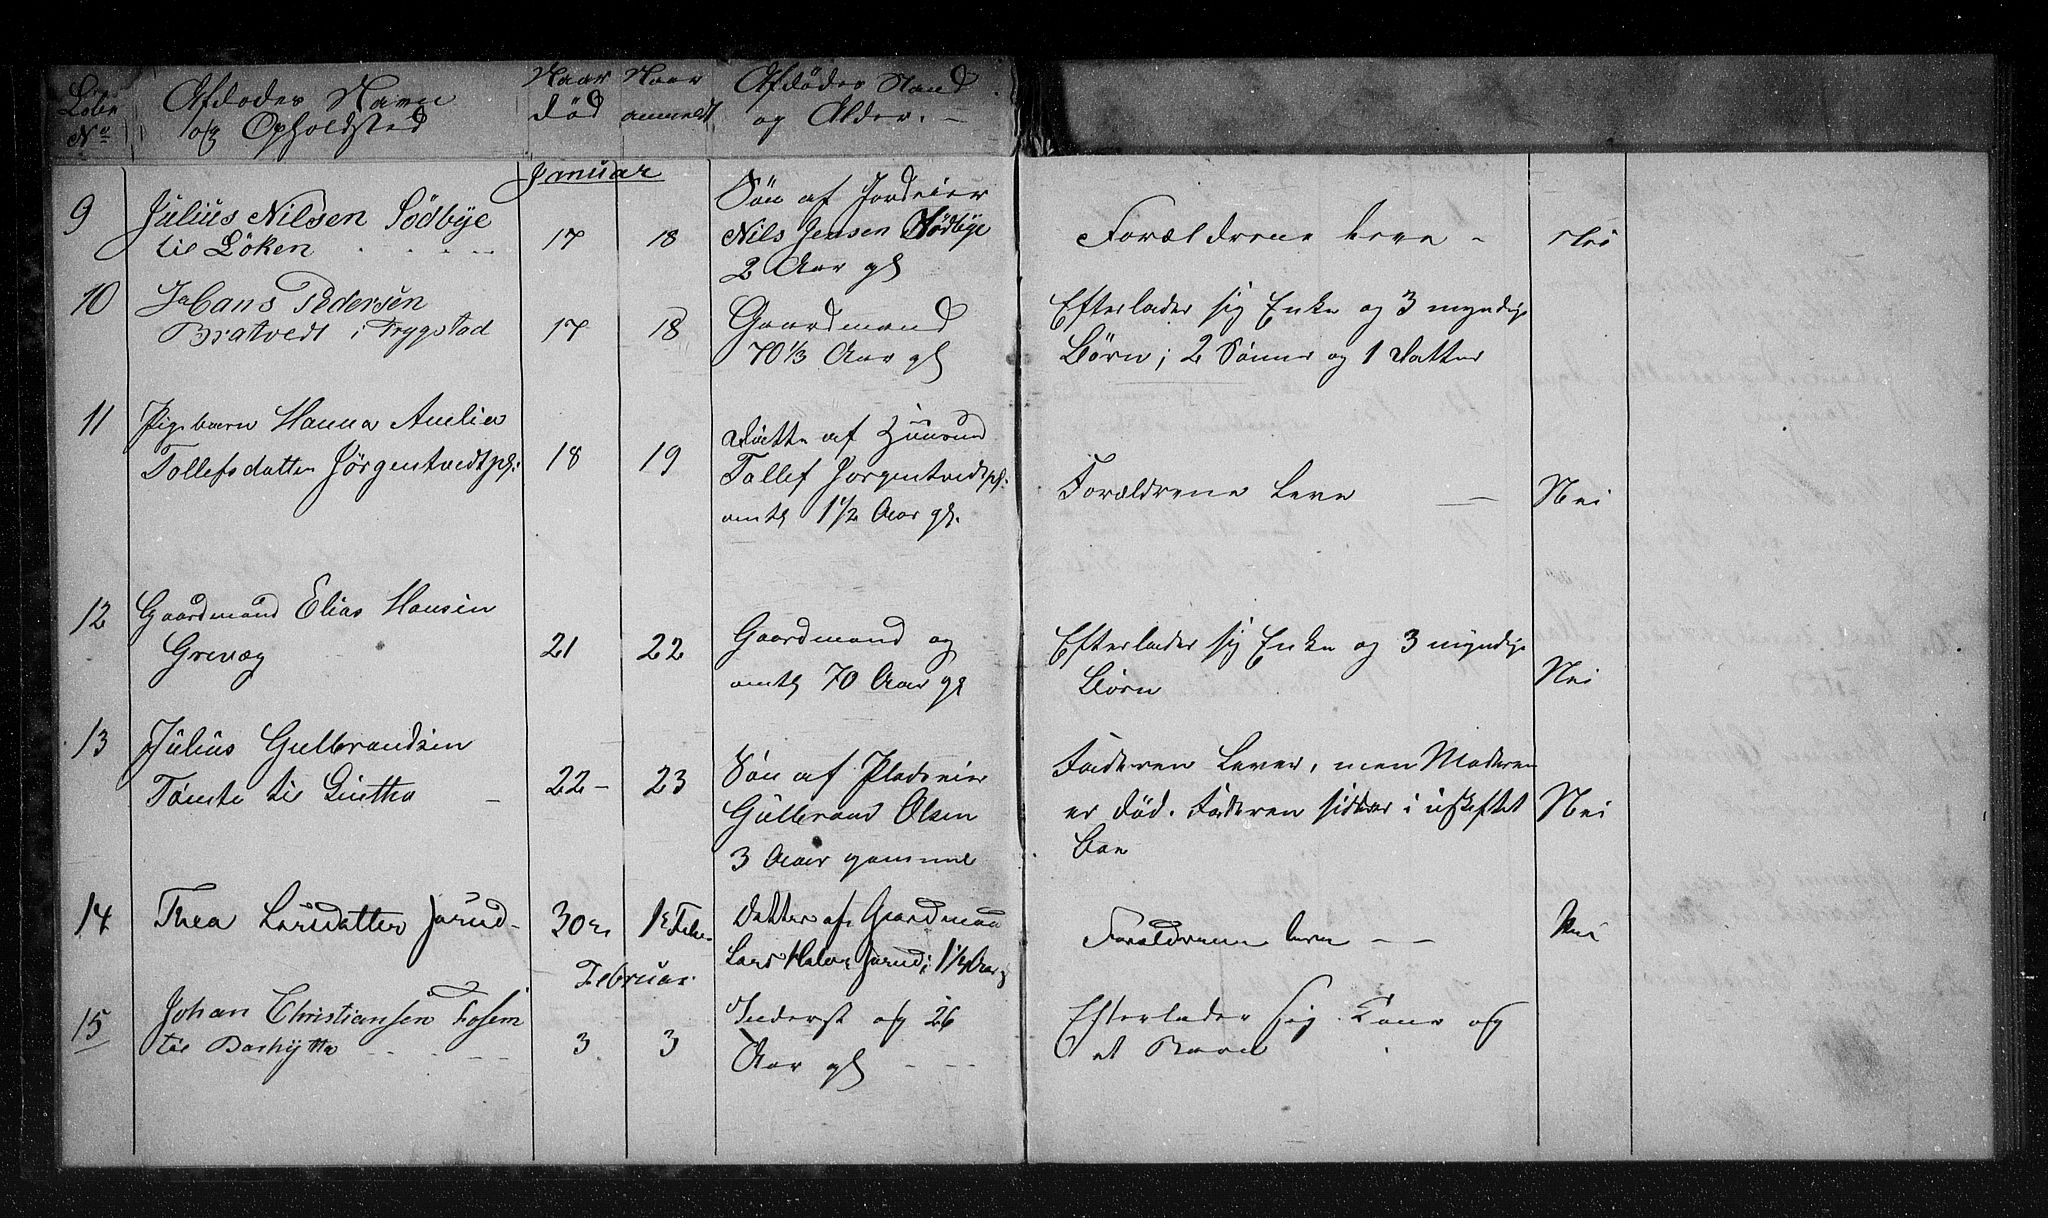 Løbe
No
Afdødes Navn
og Opholdsted
Naar
død
Naar
anmeldt
Afdødes Stand
og Alder. -
Januar
9
Julius Nilsen Södbye
til Löken
17
18
Søn af Jordeier
Nils Jensen Södbye
2 Aar gl
Forældrene leve -
Nei
10
Hans Pedersen
Bratvedt i Trygstad
17
18
Gaardmand
70 1/3 Aar gl
Efterlader sig Enke og 3 myndige
Børn; 2 Sønner og 1 Datter
11
Pigebarn Hanna Amelia
Tollefsdatter Jörgentvedtpl:
18
19
Datter af Huusmd
Tollef Jorgentvedtpl:
omtl 1 1/2 Aar gl.
Forældrene leve -
Nei
12
Gaardmand Elias Hansen
Grevæg
21
22
Gaardmand og
omtl 70 Aar gl
Efterlader sig Enke og 3 myndige
Børn
Nei
13
Julius Gulbrandsen
Tömte til -
22 -
23
Søn af Pladseier
Gulbrand Olsen
3 Aar gammel
Faderen lever, men Moderen
er død. Faderen sidder i uskiftet
Boe
Nei
14
Thea Larsdatter Jarud -
30
1 Febr.
Datter af Gaardmand
Lars Halv. Jarud; 1 1/2 Aar g
Forældrene leve - -
Nei
Februar
15
Johan Christiansen Fosem
til Bashytta
3.
3
Inderst og 26
Aar gl - - -
Efterlader sig Kone og
et Barn